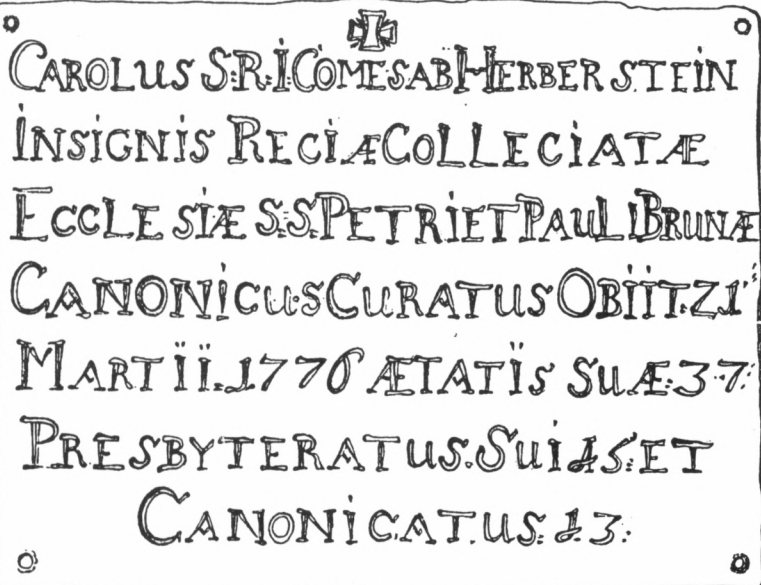 CAROLUS S:R:I:COMES AB HERBERSTEIN
INSIGNIS REGIÆ COLLEGIATÆ
ECCLESIÆ S:S:PETRI ET PAULI BRUNÆ
CANONICUS CURATUS OBIIT.21
MARTII.1776 ÆTATIS SUÆ:37:
PRESBYTERATUS.SUI 15:ET
CANONICATUS:13: